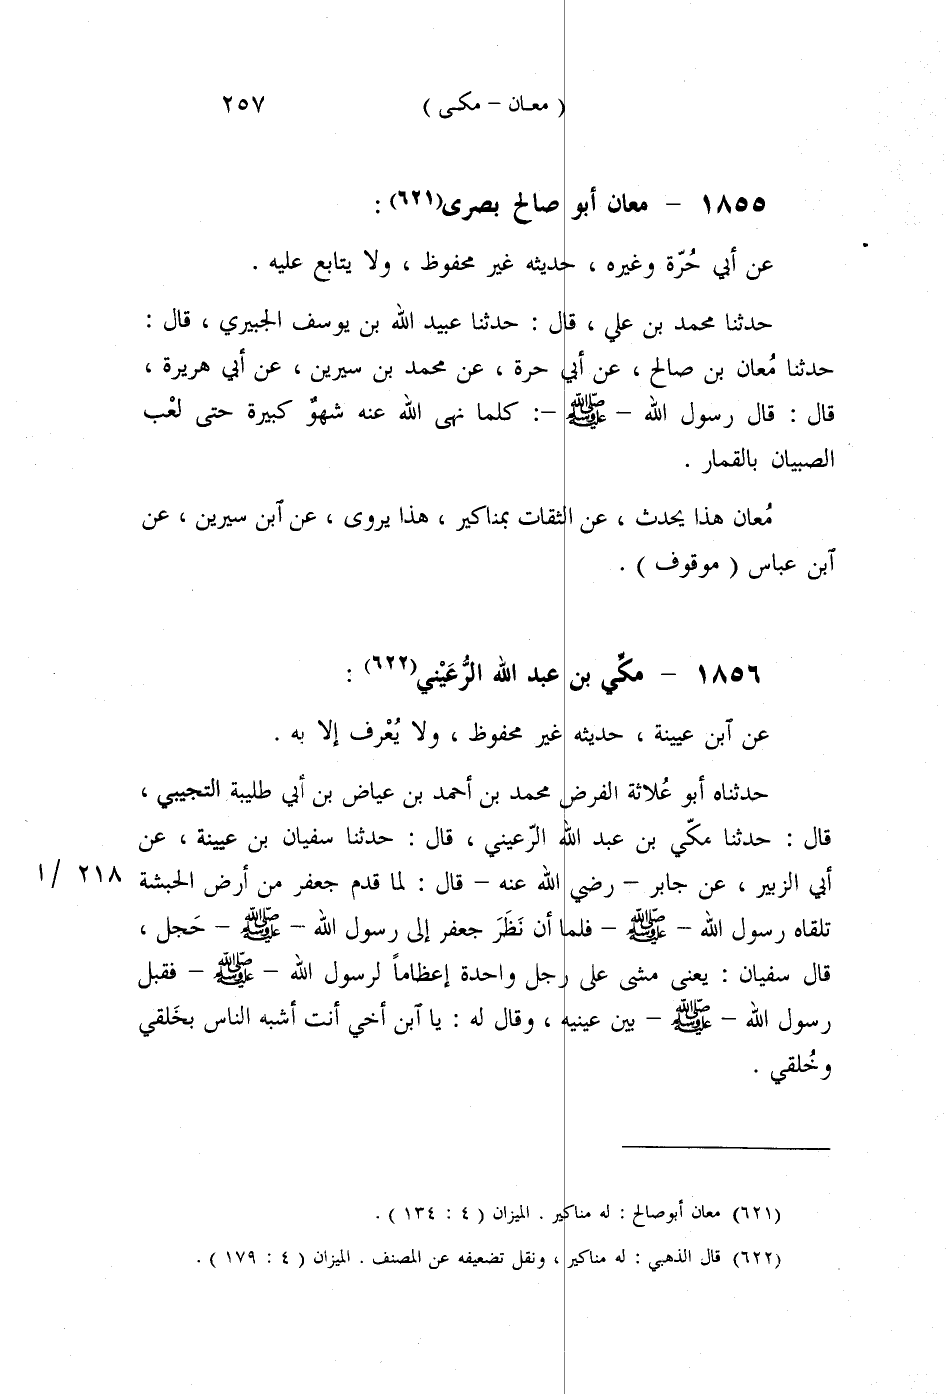 ( معـان – مكـى ) ٢٥٧
١٨٥٥ – معان أبو صالح بصرى(٦٢١) :
عن أبي حُرّة وغيره ، حديثه غير محفوظ ، ولا يتابع عليه .
حدثنا محمد بن علي ، قال : حدثنا عبيد الله بن يوسف الجبيري ، قال :
حدثنا مُعان بن صالح ، عن أبي حرة ، عن محمد بن سيرين ، عن أبي هريرة ،
قال : قال رسول الله – ﷺ –: كلما نهى الله عنه شهوٌ كبيرة حتى لعْب
الصبيان بالقمار .
مُعان هذا يحدث ، عن الثقات بمناكير ، هذا يروى ، عن آبن سيرين ، عن
آبن عباس ( موقوف ) .
١٨٥٦ – مكّي بن عبد الله الرُّعَيْني(٦٢٢) :
عن آبن عيينة ، حديثه غير محفوظ ، ولا يُعْرف إلا به .
حدثناه أبو عُلاثة الفرض محمد بن أحمد بن عياض بن أبي طليبة التجيبي ،
قال : حدثنا مكّي بن عبد الله الرّعيني ، قال : حدثنا سفيان بن عيينة ، عن
أبي الزبير ، عن جابر – رضي الله عنه – قال : لما قدم جعفر من أرض الحبشة ٢١٨ /ا
تلقاه رسول الله – ﷺ – فلما أن نَظَرَ جعفر إلى رسول الله – ﷺ – حَجل ،
قال سفيان : يعنى مشى على رجل واحدة إعظاماً لرسول الله – ﷺ – فقبل
رسول الله – ﷺ – بين عينيه ، وقال له : يا آبن أخي أنت أشبه الناس بخَلقي
وخُلقي .
(٦٢١) معان أبو صالح : له مناكير . الميزان ( ٤ : ١٣٤ ) .
(٦٢٢) قال الذهبي : له مناكير ، ونقل تضعيفه عن المصنف . الميزان ( ٤ : ١٧٩ ) .